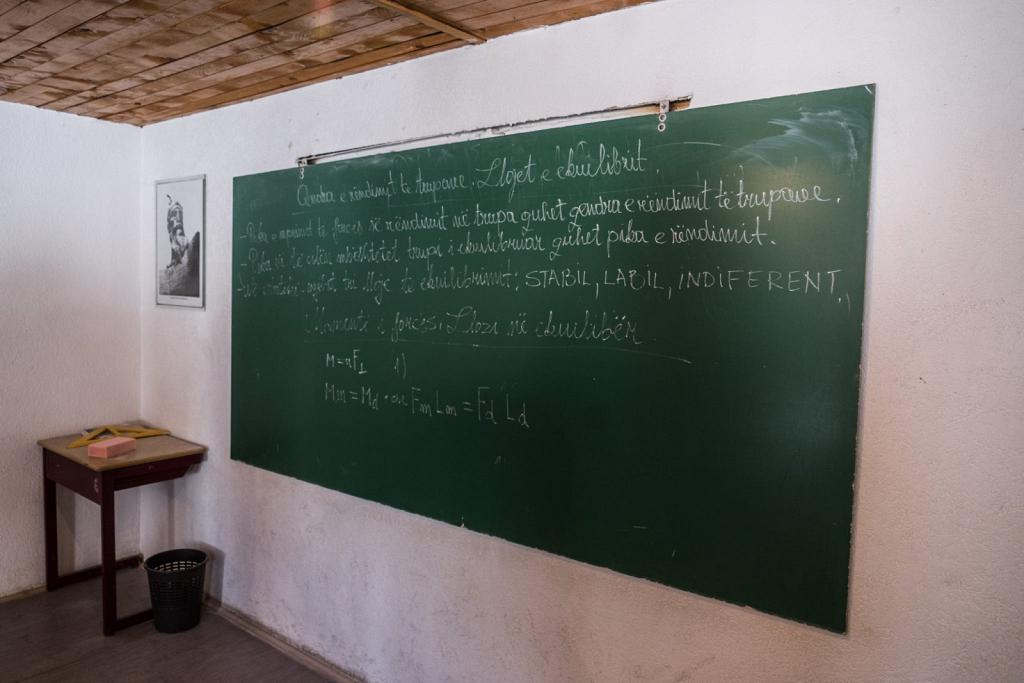 Qendra e rëndimit të trupave. Llojet e ekuilibrit.
- Pika e aplikimit të forcës së rëndimit në trupa quhet qendra e rëndimit të trupave.
Pika në të cilën mbështetet trupi i ekuilibruar quhet pika e rëndimit.
tri lloje të ekuilibrimit: STABIL, LABIL, INDIFERENT.
Momenti i forcës. Llozi në ekuilibër
M = rF⊥ 1)
Mm = Md ose Fm Lm = Fd Ld